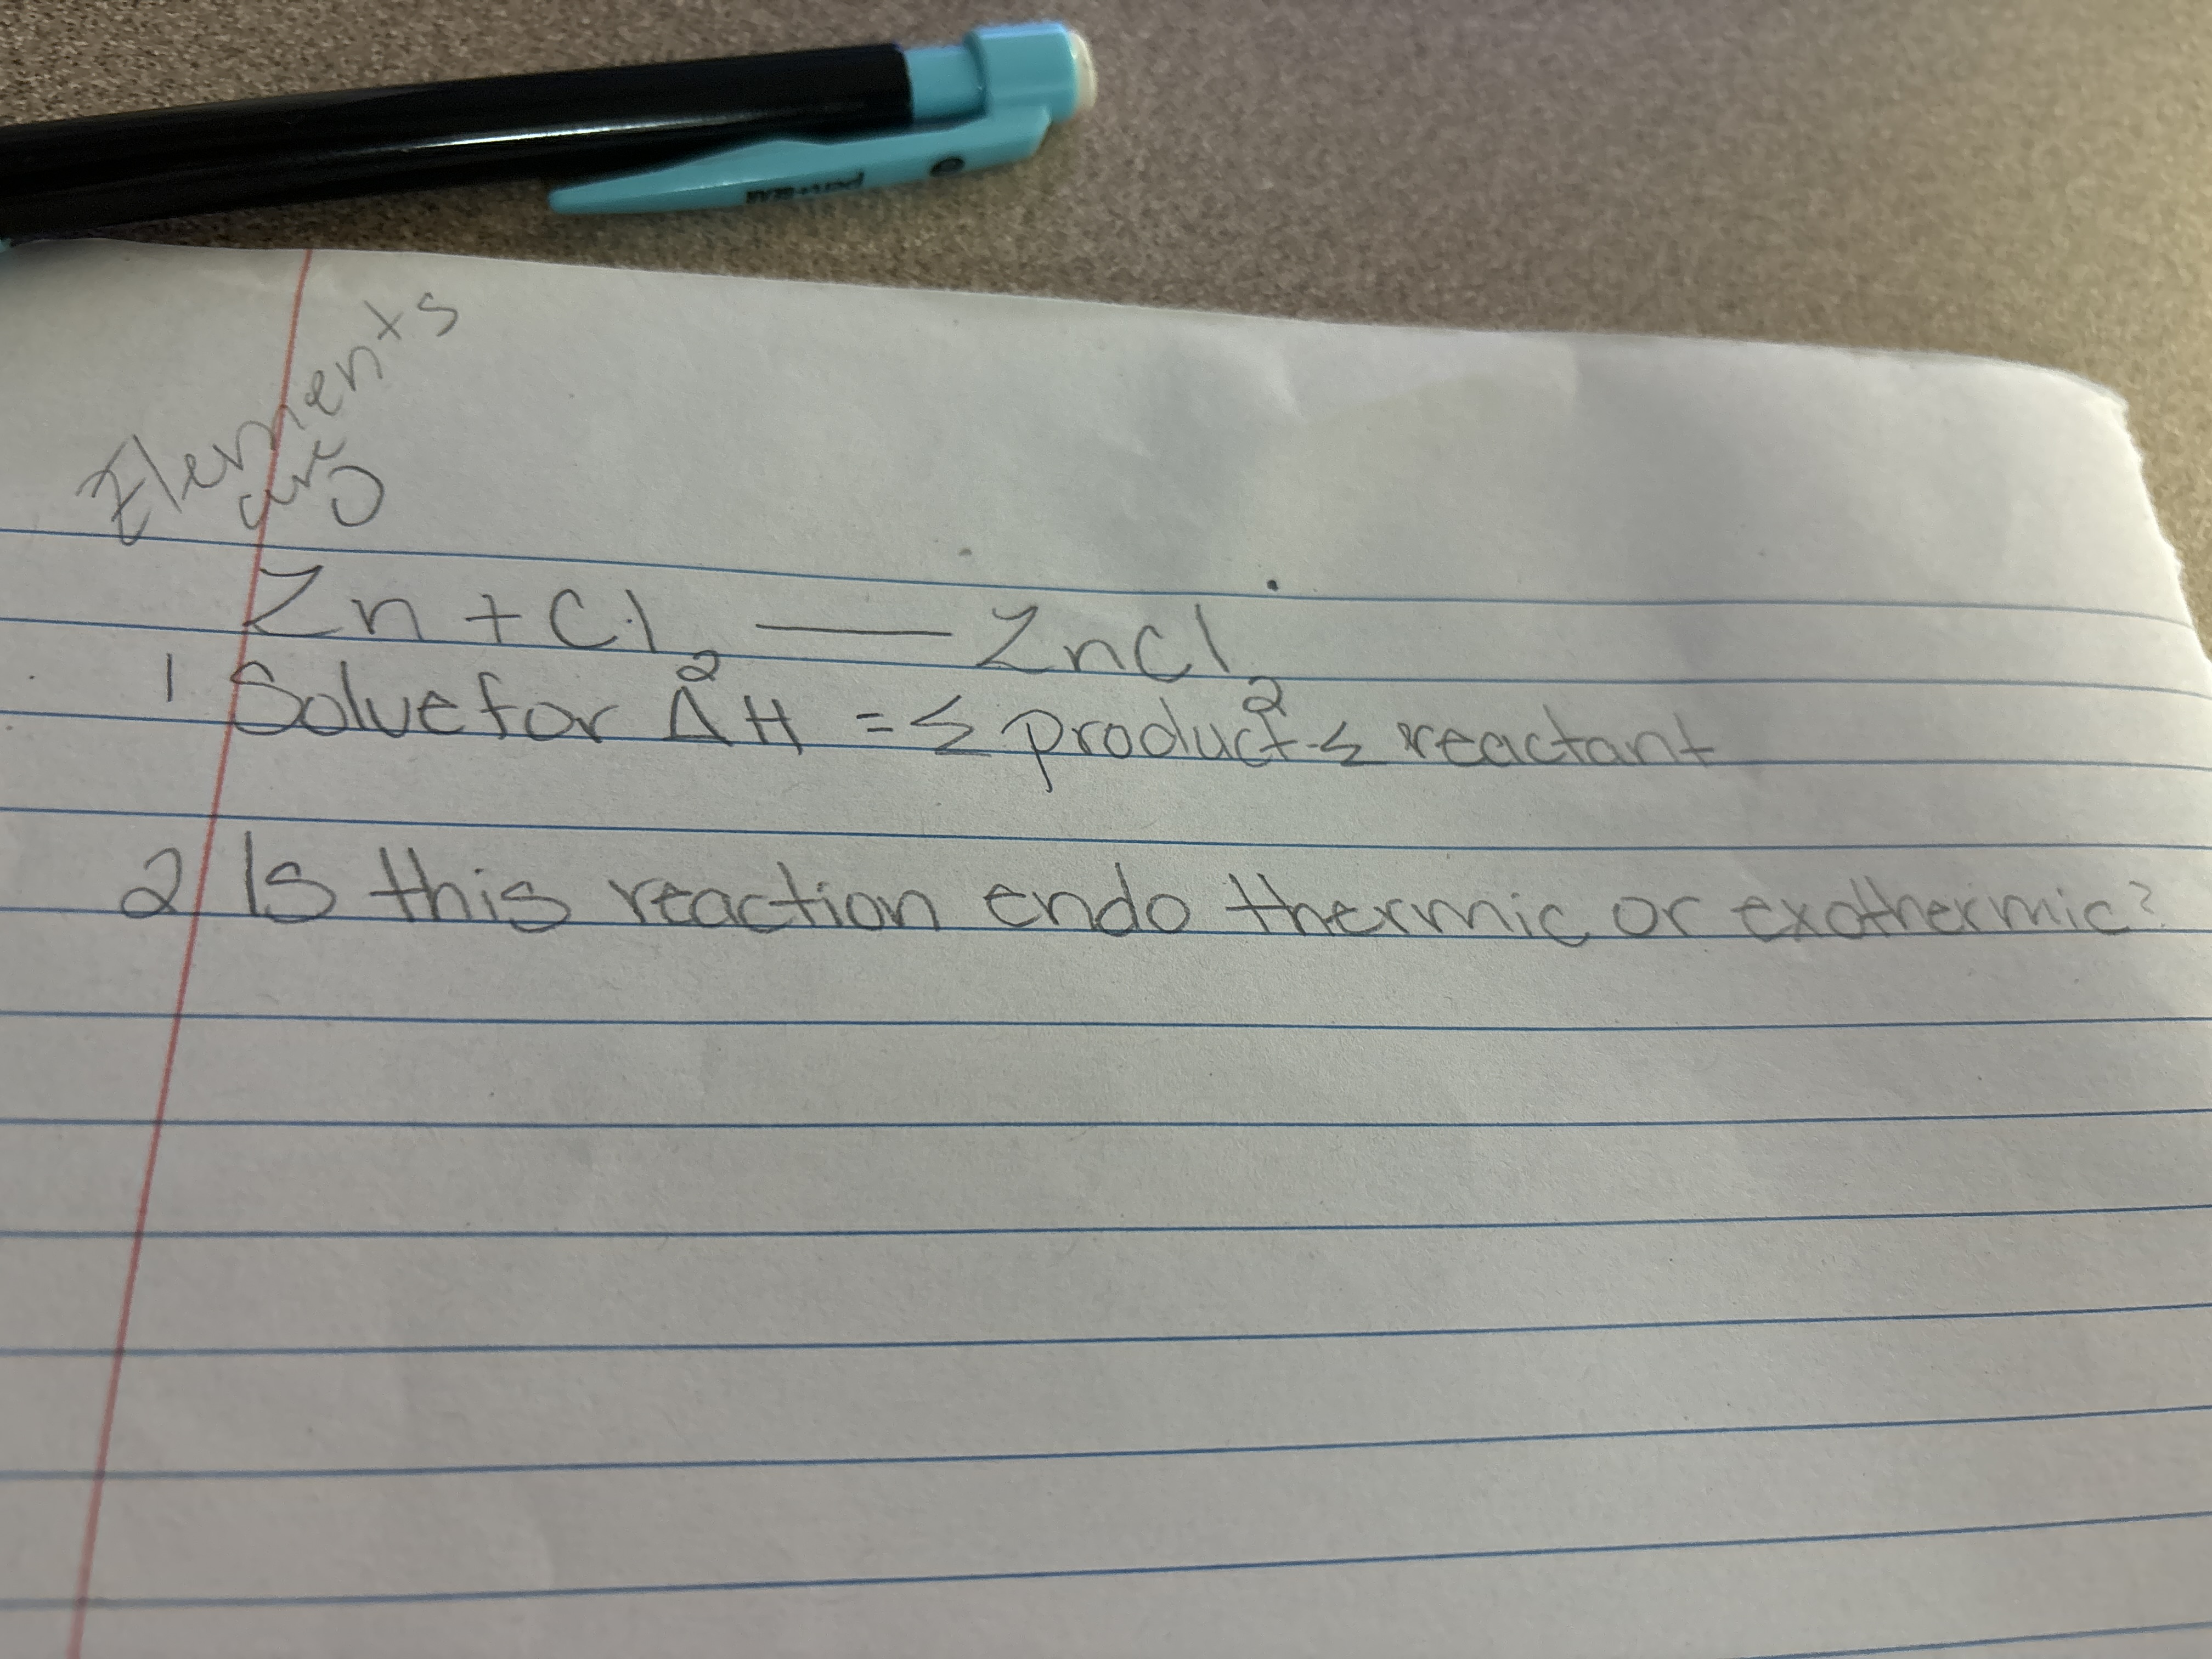 Elements
are
0
Zn + Cl₂ — ZnCl₂
1 Solve for ΔH = Σ product - Σ reactant
2 Is this reaction endo thermic or exothermic?